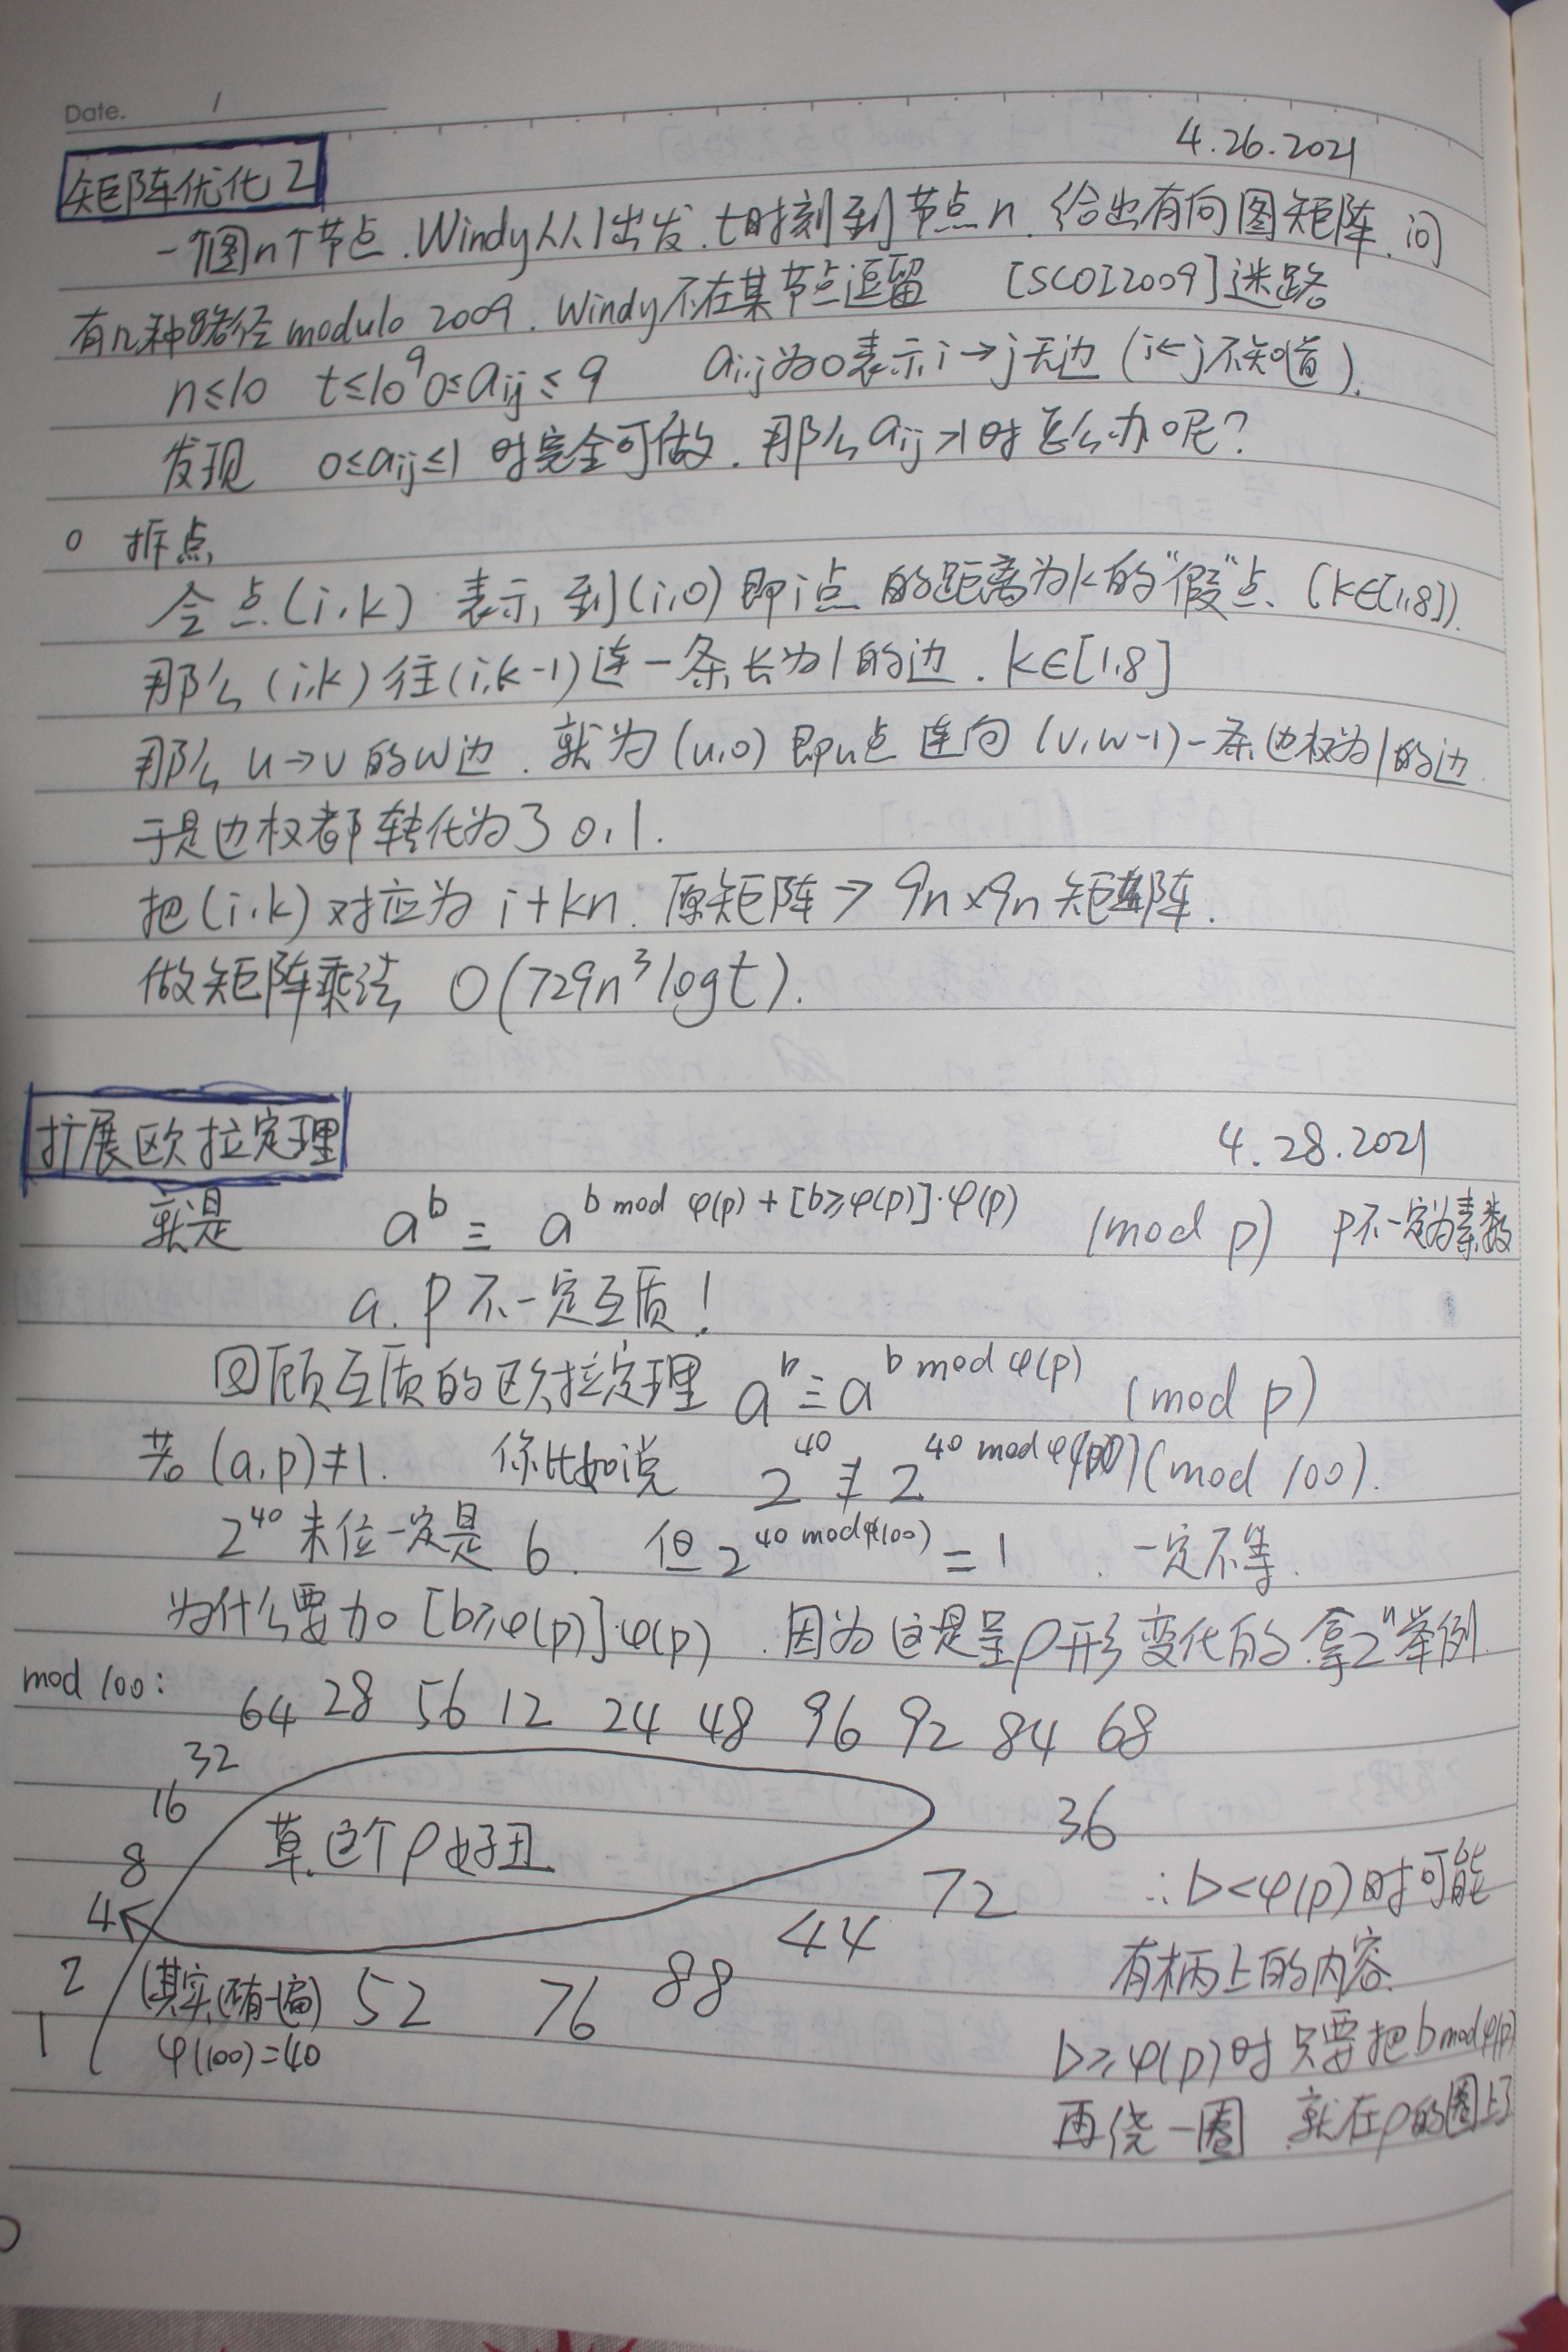 Date. 1
4.26.2021
矩阵优化2
一个图n个节点.Windy从1出发.t时刻到节点n.给出有向图矩阵.问
有几种路径 modulo 2009. Windy不在某节点逗留 [SCOI2009]迷路
n≤10 t≤10^9 0≤aij≤9 ai,j为0表示i→j无边(i←j不知道).
发现 0≤aij≤1 时完全可做.那么aij>1时怎么办呢?
o 拆点
令点(i,k) 表示到(i,0)即i点的距离为k的"假"点.(k∈[1,8]).
那么(i,k)往(i,k-1)连一条长为1的边.k∈[1,8]
那么u→v的w边.就为(u,0)即u点连向(v,w-1)一条边权为1的边
于是边权都转化为了0,1.
把(i,k)对应为i+kn.原矩阵→9n×9n矩阵.
做矩阵乘法 O(729n³logt).
扩展欧拉定理
4.28.2021
就是 a^b ≡ a^{b mod φ(p) + [b≥φ(p)]·φ(p)} (mod p) p不一定为素数
a.p不一定互质!
回顾互质的欧拉定理 a^b ≡ a^{b mod φ(p)} (mod p)
若(a,p)≠1. 你比如说 2^40 ≢ 2^{40 mod φ(100)} (mod 100).
2^40末位一定是6. 但2^{40 mod φ(100)} = 1 . 一定不等.
为什么要加[b≥φ(p)]·φ(p).因为这是呈ρ形变化的.拿2^n举例.
mod 100:
64 28 56 12 24 48 96 92 84 68
32
16
36
草.这个ρ好丑
8
72
∴b<φ(p)时可能
4
44
有柄上的内容.
2
(其实还有一遍) 52 76 88
1
φ(100)=40
b≥φ(p)时只要把b mod φ(p)
再绕一圈 就在ρ的圈上了